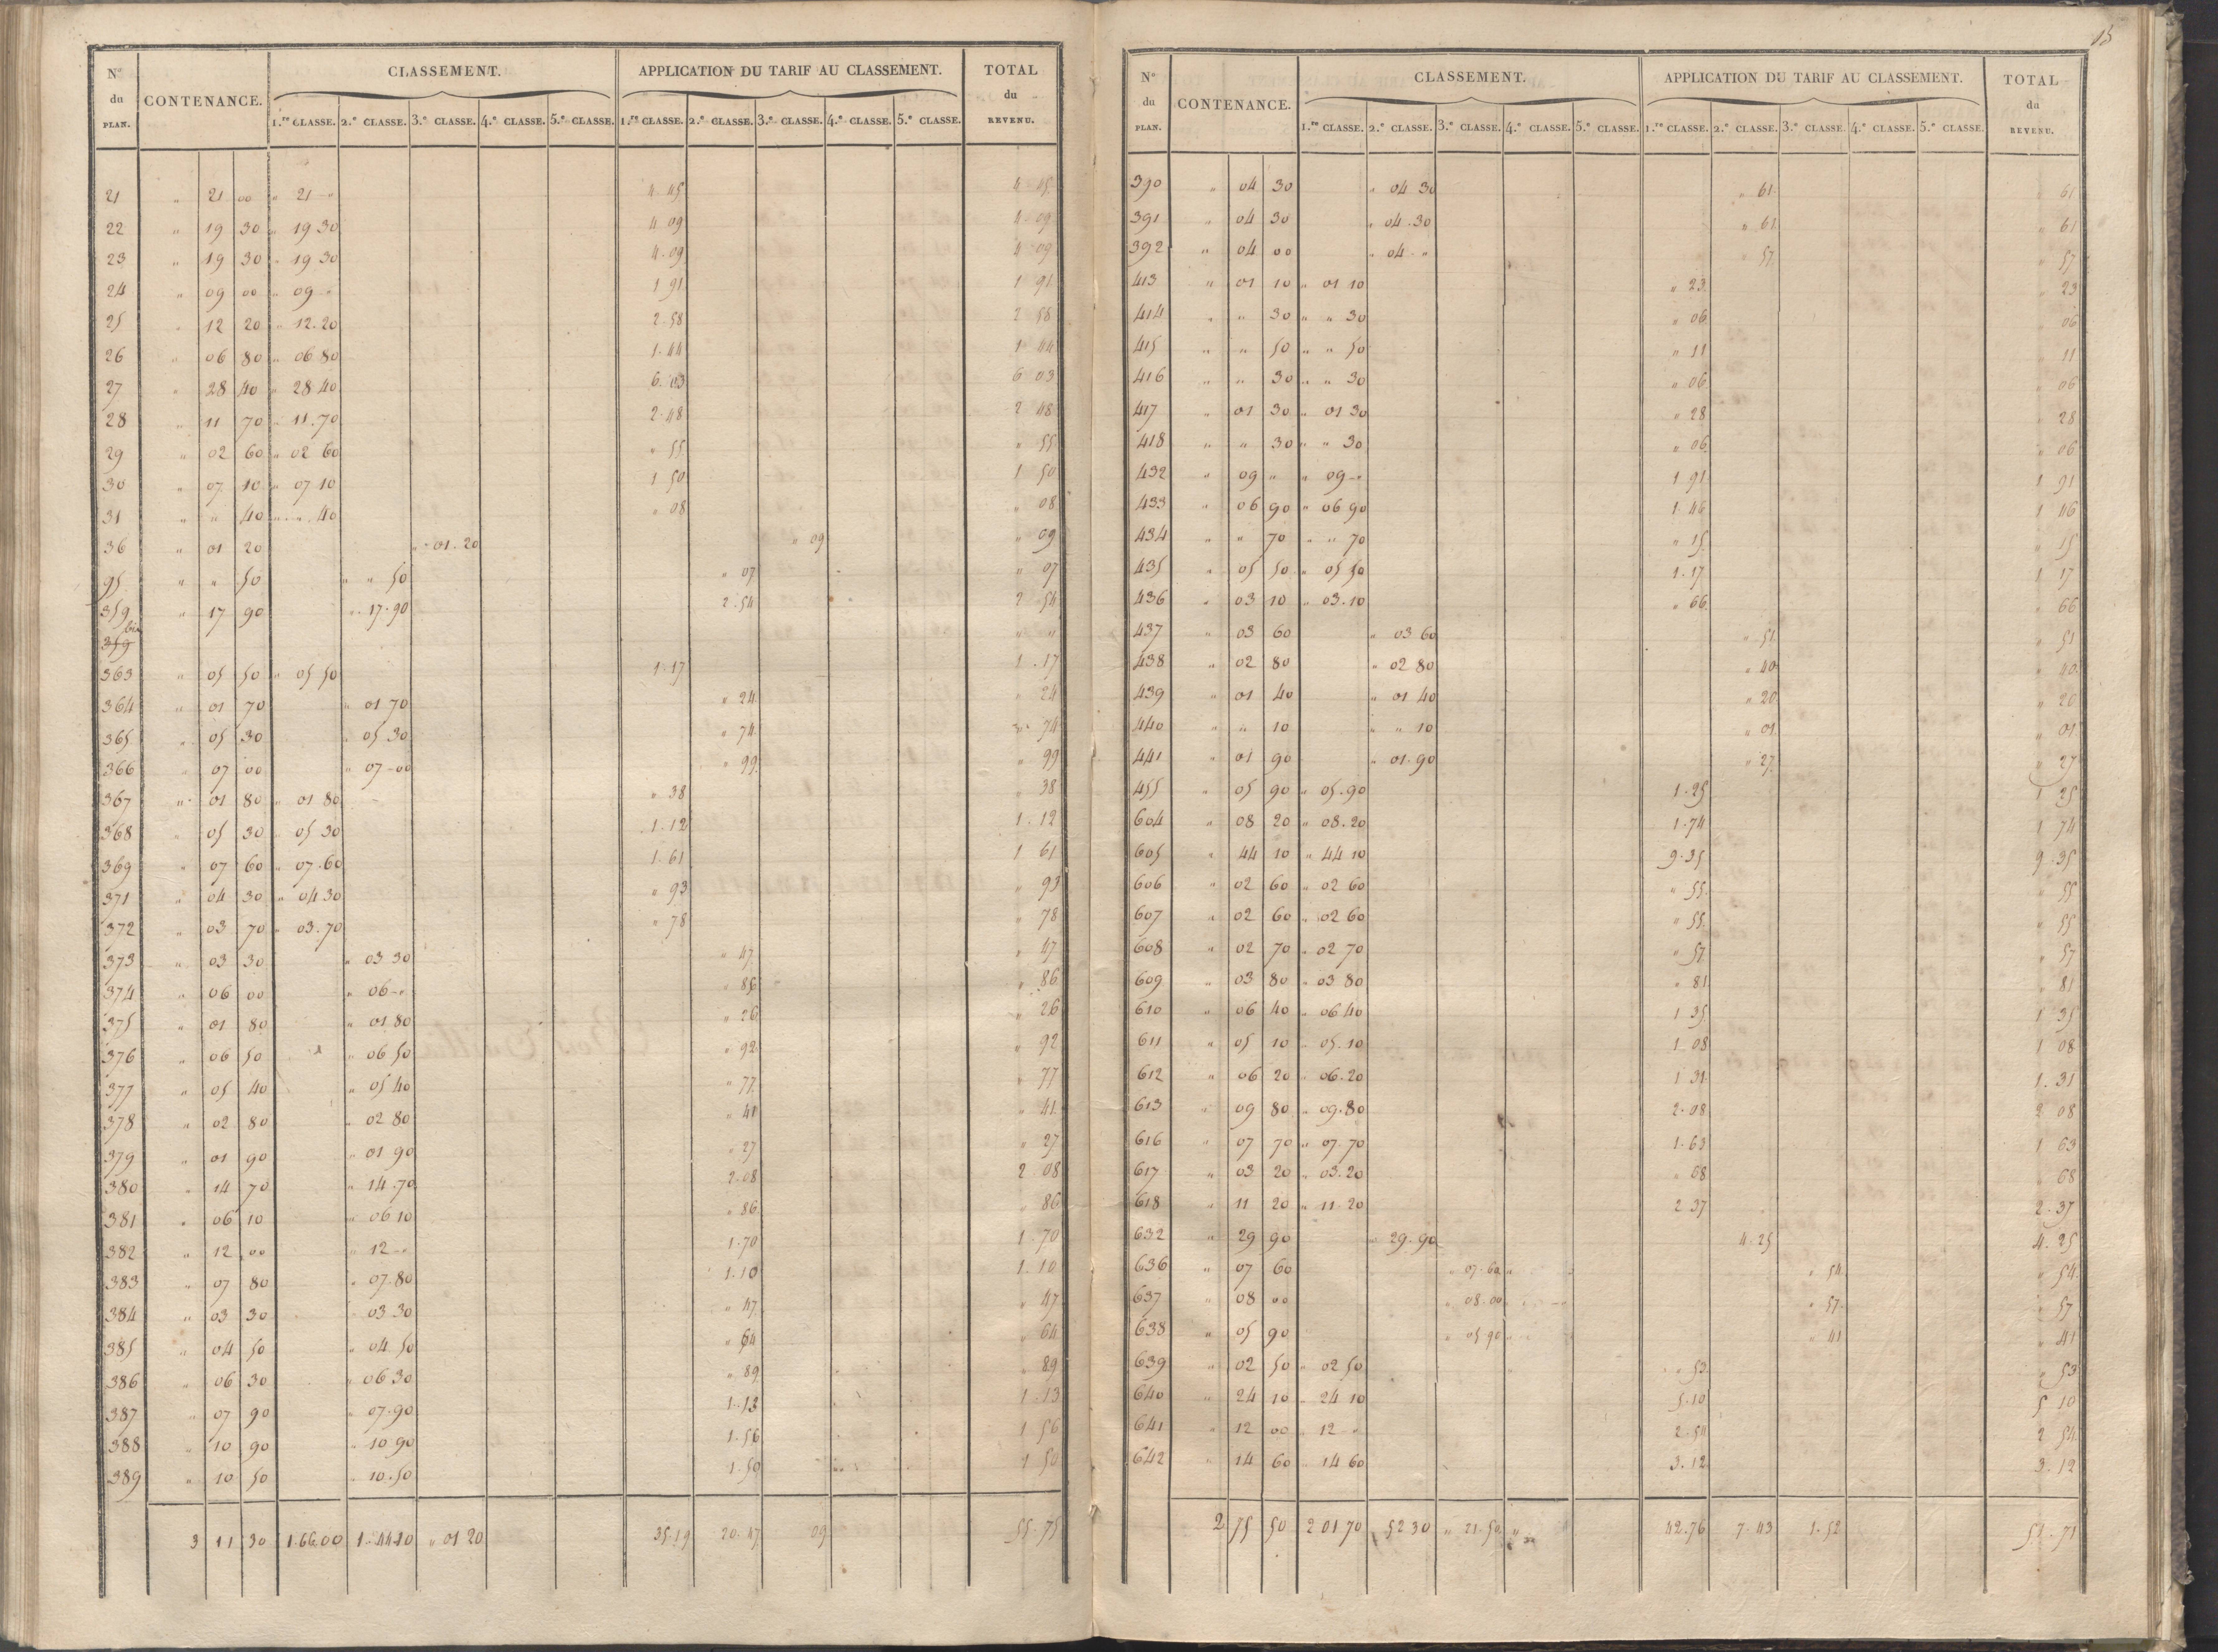 N° du PLAN. CONTENANCE. CLASSEMENT. APPLICATION DU TARIF AU CLASSEMENT. TOTAL du REVENU.
1.re CLASSE. 2.e CLASSE. 3.e CLASSE. 4.e CLASSE. 5.e CLASSE. 1.re CLASSE. 2.e CLASSE. 3.e CLASSE. 4.e CLASSE. 5.e CLASSE.
21 " 21 00 " 21 - " 4.45 4 45
22 " 19 30 " 19 30 4 09 4 09
23 " 19 30 " 19 30 4.09 4 09
24 " 09 00 " 09 - " 1 91 1 91
25 " 12 20 " 12.20 2.58 2 58
26 " 06 80 " 06 80 1.44 1 44
27 " 28 40 " 28 40 6.03 6 03
28 " 11 70 " 11.70 2.48 2 48
29 " 02 60 " 02 60 " 55 " 55
30 " 07 10 " 07 10 1 50 1 50
31 " " 40 " " 40 " 08 " 08
36 " 01 20 " 01.20 " 09 " 09
95 " " 50 " " 50 " 07 " 07
359 " 17 90 " 17.90 2.54 2 54
359 bis " "
363 " 05 50 " 05 50 1.17 1.17
364 " 01 70 " 01 70 " 24 " 24
365 " 05 30 " 05 30 " 74 " 74
366 " 07 00 " 07-00 " 99 " 99
367 " 01 80 " 01 80 " 38 " 38
368 " 05 30 " 05 30 1.12 1.12
369 " 07 60 " 07.60 1.61 1 61
371 " 04 30 " 04 30 " 93 " 93
372 " 03 70 " 03.70 " 78 " 78
373 " 03 30 " 03 30 " 47 " 47
374 " 06 00 " 06 - " " 86 " 86
375 " 01 80 " 01 80 " 26 " 26
376 " 06 50 " 06 50 " 92 " 92
377 " 05 40 " 05 40 " 77 " 77
378 " 02 80 " 02 80 " 41 " 41
379 " 01 90 " 01 90 " 27 " 27
380 " 14 70 " 14.70 2.08 2 08
381 " 06 10 " 06 10 " 86 " 86
382 " 12 00 " 12 - " 1.70 1.70
383 " 07 80 " 07.80 1.10 1.10
384 " 03 30 " 03 30 " 47 " 47
385 " 04 50 " 04 50 " 64 " 64
386 " 06 30 " 06 30 " 89 " 89
387 " 07 90 " 07.90 1.13 1.13
388 " 10 90 " 10 90 1.56 1 56
389 " 10 50 " 10.50 1.50 1 50
3 11 30 1.66.00 1.44.10 " 01 20 35.19 20.47 09 55.75
15
N° du PLAN. CONTENANCE. CLASSEMENT. APPLICATION DU TARIF AU CLASSEMENT. TOTAL du REVENU.
1.re CLASSE. 2.e CLASSE. 3.e CLASSE. 4.e CLASSE. 5.e CLASSE. 1.re CLASSE. 2.e CLASSE. 3.e CLASSE. 4.e CLASSE. 5.e CLASSE.
390 " 04 30 " 04 30 " 61 " 61
391 " 04 30 " 04.30 " 61 " 61
392 " 04 00 " 04 - " " 57 " 57
413 " 01 10 " 01 10 " 23 " 23
414 " " 30 " " 30 " 06 " 06
415 " " 50 " " 50 " 11 " 11
416 " " 30 " " 30 " 06 " 06
417 " 01 30 " 01 30 " 28 " 28
418 " " 30 " " 30 " 06 " 06
432 " 09 " " 09 - " 1 91 1 91
433 " 06 90 " 06 90 1.46 1 46
434 " " 70 " " 70 " 15 " 15
435 " 05 50 " 05 50 1.17 1 17
436 " 03 10 " 03.10 " 66 " 66
437 " 03 60 " 03 60 " 51 " 51
438 " 02 80 " 02 80 " 40 " 40
439 " 01 40 " 01 40 " 20 " 20
440 " " 10 " " 10 " 01 " 01
441 " 01 90 " 01.90 " 27 " 27
455 " 05 90 " 05.90 1.25 1 25
604 " 08 20 " 08.20 1.74 1 74
605 " 44 10 " 44 10 9.35 9.35
606 " 02 60 " 02 60 " 55 " 55
607 " 02 60 " 02 60 " 55 " 55
608 " 02 70 " 02 70 " 57 " 57
609 " 03 80 " 03 80 " 81 " 81
610 " 06 40 " 06 40 1 35 1 35
611 " 05 10 " 05.10 1 08 1 08
612 " 06 20 " 06.20 1 31 1.31
613 " 09 80 " 09.80 2.08 2 08
616 " 07 70 " 07.70 1.63 1 63
617 " 03 20 " 03.20 " 68 " 68
618 " 11 20 " 11.20 2 37 2.37
632 " 29 90 " 29.90 4.25 4.25
636 " 07 60 " 07.60 " 54 " 54
637 " 08 00 " 08.00 " 57 " 57
638 " 05 90 " 05 90 " 41 " 41
639 " 02 50 " 02 50 " 53 " 53
640 " 24 10 " 24 10 5.10 5 10
641 " 12 00 " 12 - " 2.54 2 54
642 " 14 60 " 14 60 3.12 3.12
2 75 50 2 01 70 52 30 " 21.50 42.76 7.43 1.52 51.71